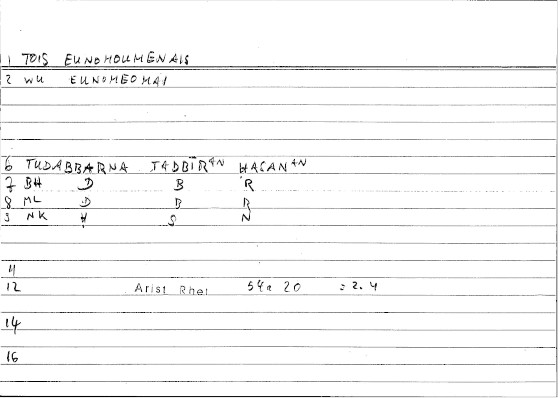 1 TOIS EUNOMOUMENAIS
2 WU EUNOMEOMAI
6 TUDABBARNA TADBĪRAN HASANAN
7 BH D B R
8 ML D B R
9 NK H S N
11
12 Arist Rhet 54a 20 = 2.4
14
16